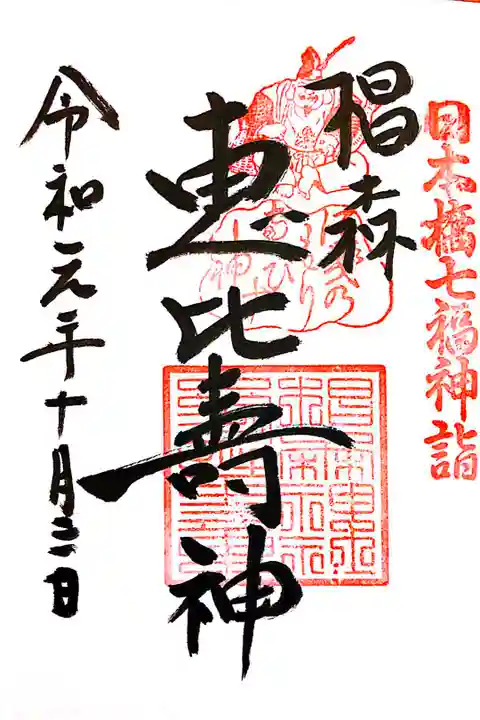 日本橋七福神詣
椙森
恵比壽神
令和元年十月二日